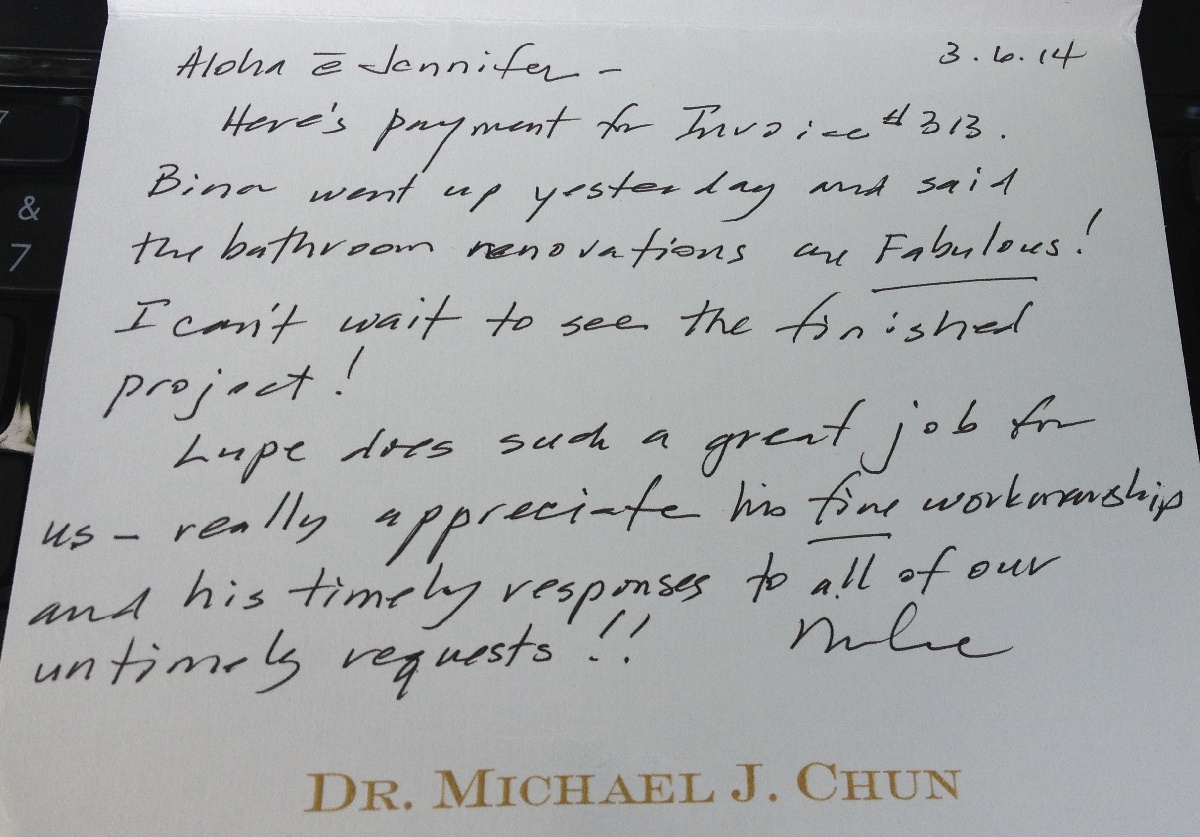 3.6.14
Aloha ē Jennifer -
Here's payment for Invoice #313.
Bina went up yesterday and said
the bathroom renovations are Fabulous!
I can't wait to see the finished
project!
Lupe does such a great job for
us - really appreciate his fine workmanship
and his timely responses to all of our
untimely requests!!
Mike
DR. MICHAEL J. CHUN
&
7